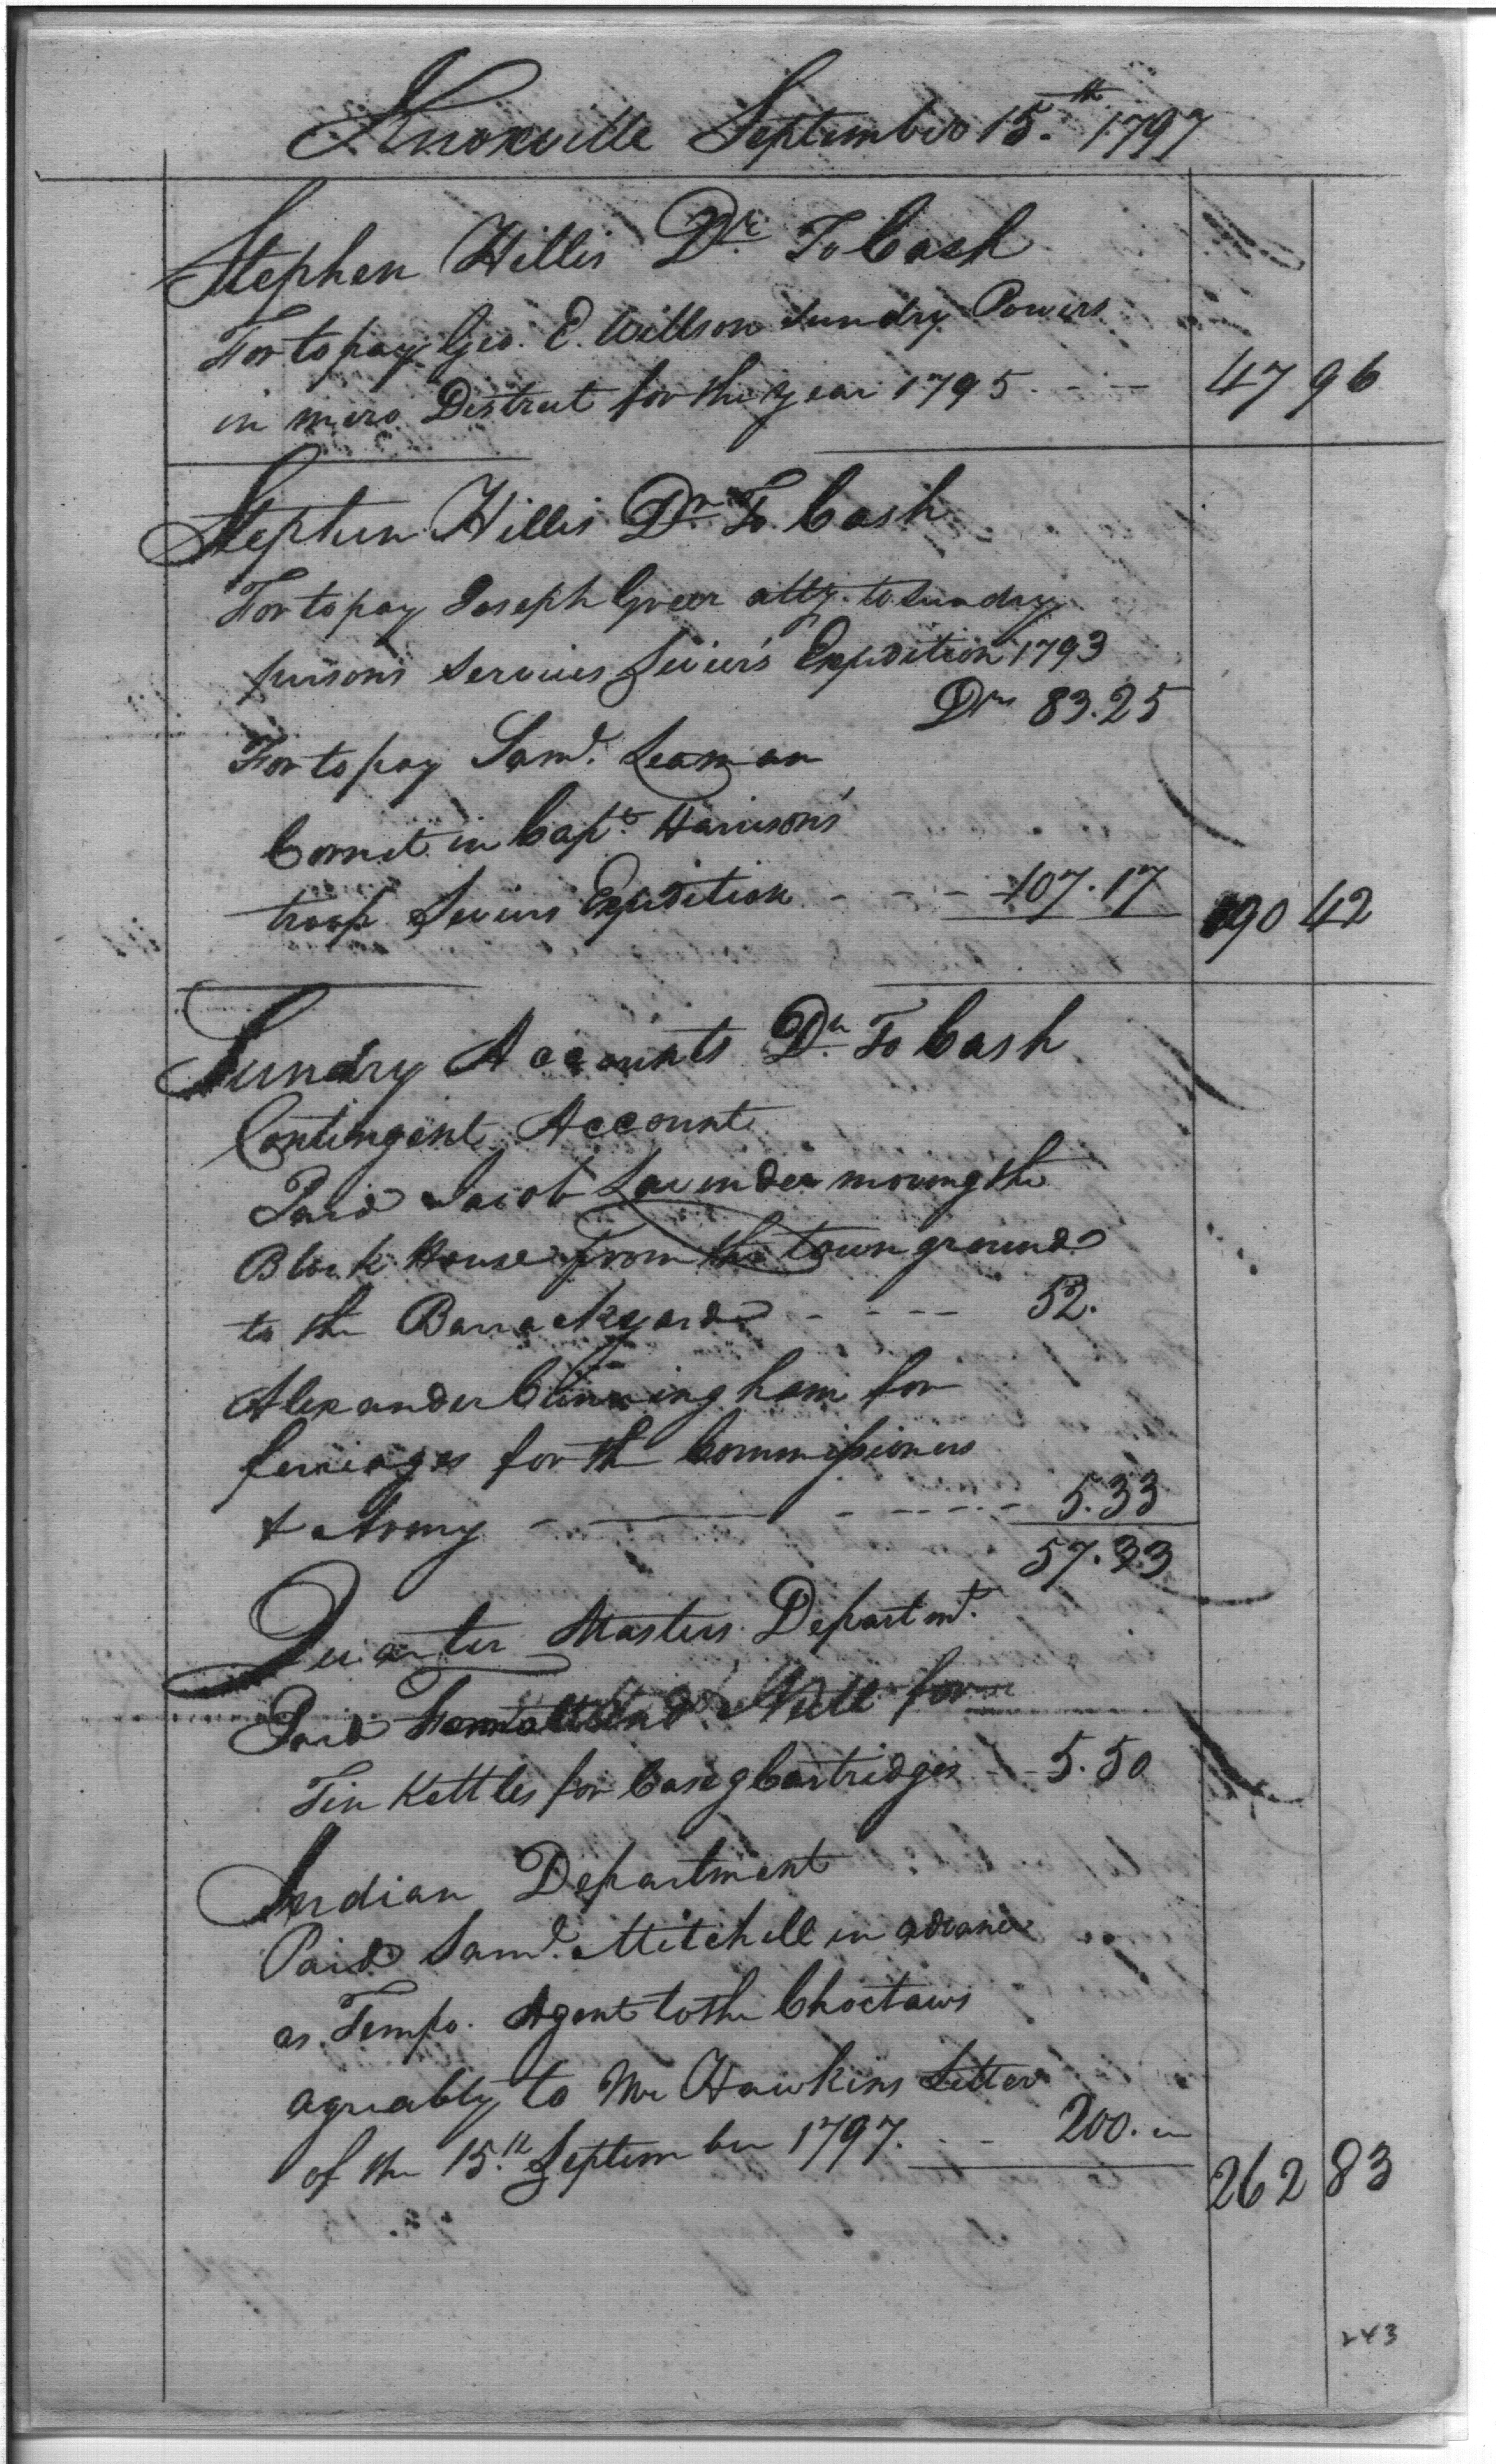 Knoxville September 15.th 1797
Stephen Hillis Dr. To Cash
For to pay Geo. E. Willson Sundry Powers
in mero District for the year 1795 - - 47 96
Stephen Hillis Dr. To Cash
For to pay Joseph Greer atty. to Sundry
persons Services Sevier's Expedition 1793
Drs 83.25
For to pay Saml. Leaman
Cornet in Capt. Harrison's
troop Seviers Expedition - - - 107.17 190 42
Sundry Accounts Dr. To Cash
Contingent Account
Paid Jacob Lavender moving the
Block House from the town ground
to the Barrackyard - - - - 52.
Alexander Cunningham for
ferriages for the Commissioners
& Army - - - - - - 5.33
57.33
Quarter Masters Departmt.
Paid for
Tin Kettles for Caseg Cartridges - - 5.50
Indian Department
Paid Saml. Mitchell in advance
as Tempo. Agent to the Choctaws
agreably to Mr Hawkins Letter
of the 15.th September 1797. - - 200. 262 83
243